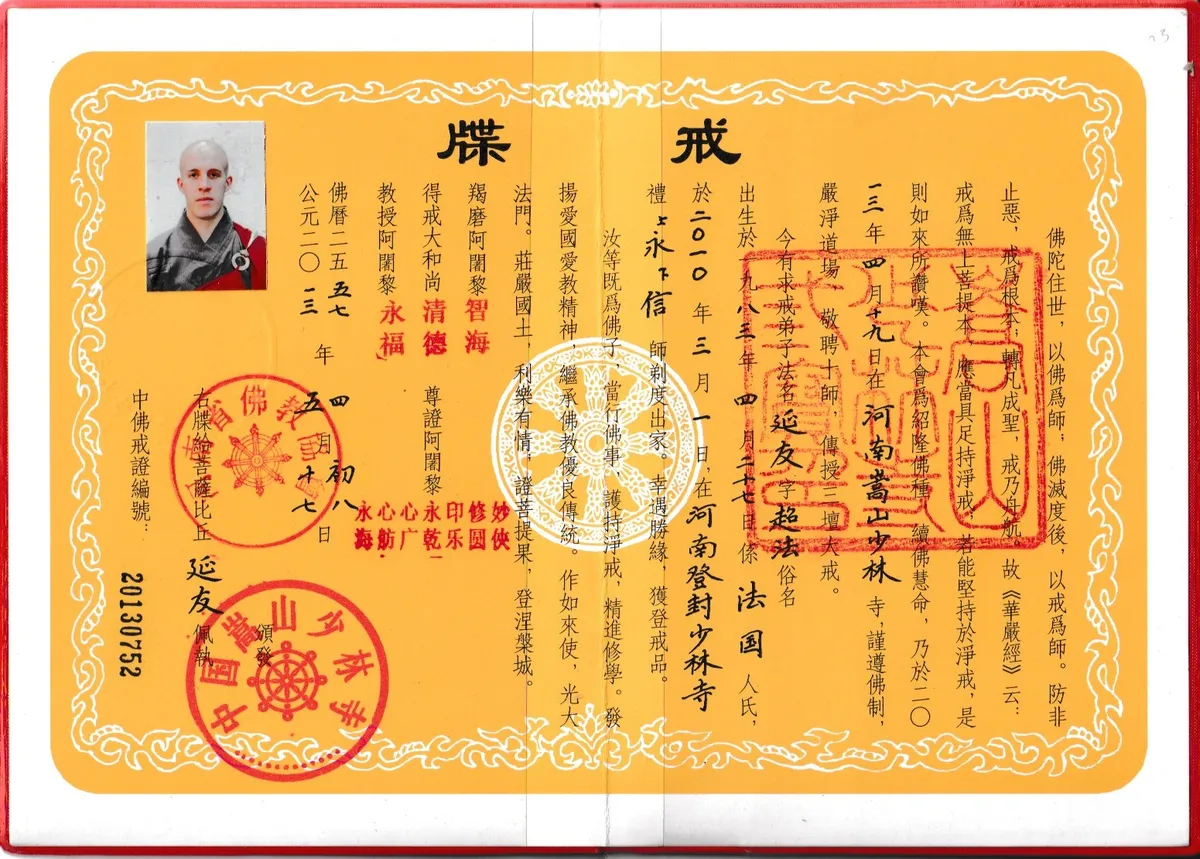 戒牒
佛陀住世，以佛爲師；佛滅度後，以戒爲師。防非
止惡，戒爲根本；轉凡成聖，戒乃舟航。故《華嚴經》云：
戒爲無上菩提本，應當具足持淨戒；若能堅持於淨戒，是
則如來所讚嘆。本會爲紹隆佛種，續佛慧命，乃於二〇
一三年四月十九日在河南嵩山少林寺，謹遵佛制，
嚴淨道場，敬聘十師，傳授三壇大戒。
今有求戒弟子法名延友字超法俗名
出生於九八三年四月二十七日係法国人氏，
於二010年三月一日，在河南登封少林寺
禮上永下信師剃度出家。幸遇勝緣，獲登戒品。
汝等既爲佛子，當行佛事，護持淨戒，精進修學。發
揚愛國愛教精神，繼承佛教優良傳統。作如來使，光大
法門。莊嚴國土，利樂有情，證菩提果，登涅槃城。
羯磨阿闍黎智海
得戒大和尚清德尊證阿闍黎
教授阿闍黎永福
妙俠
修圆
印乐
永乾
心广
心舫
永海
佛曆二五五七年四月初八日
公元二〇一三年五月十七日
右牒給菩薩比丘延友佩執
頒發
中佛戒證編號：
20130752
省佛教
中国嵩山少林寺